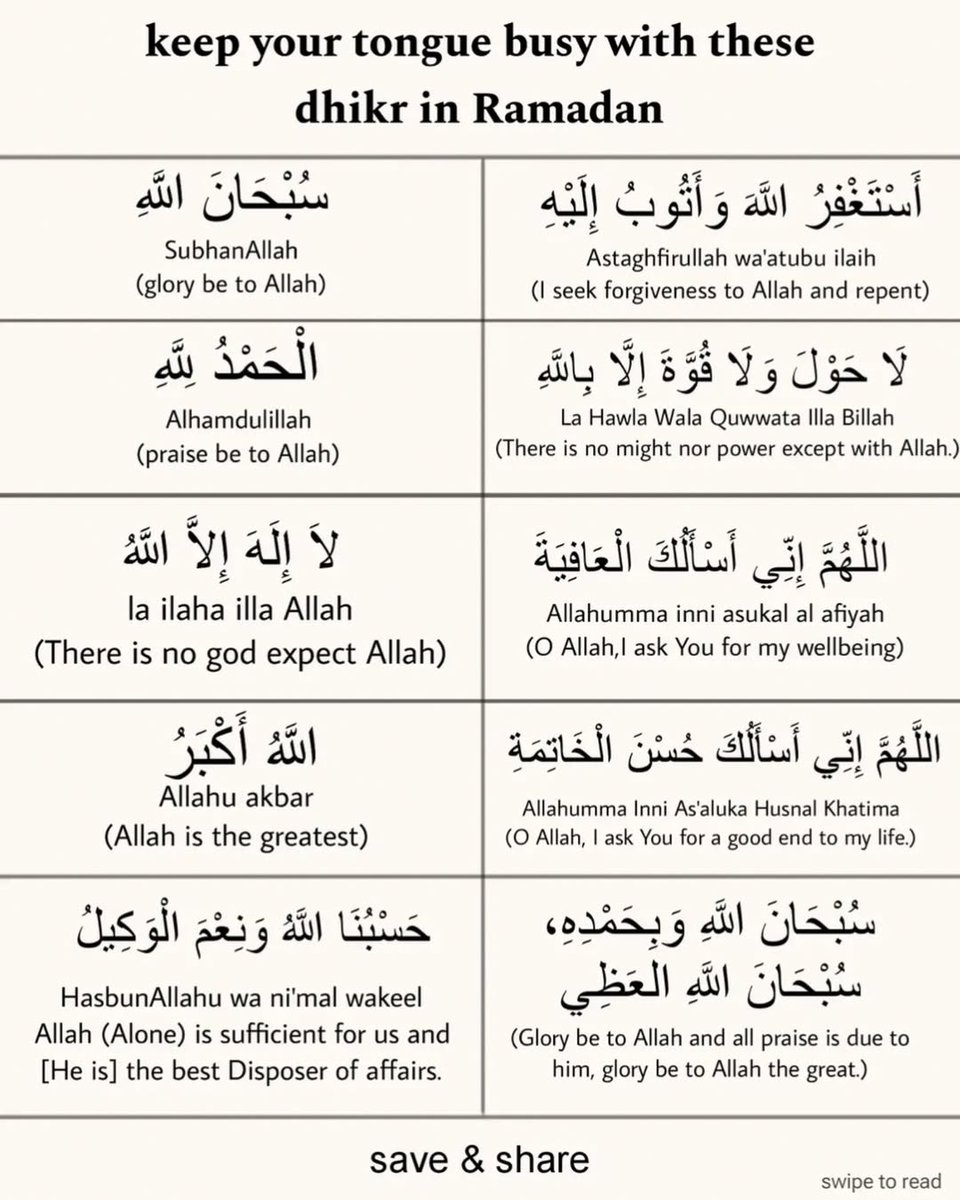 keep your tongue busy with these
dhikr in Ramadan
سُبْحَانَ اللَّهِ
SubhanAllah
(glory be to Allah)
أَسْتَغْفِرُ اللَّهَ وَأَتُوبُ إِلَيْهِ
Astaghfirullah wa'atubu ilaih
(I seek forgiveness to Allah and repent)
الْحَمْدُ لِلَّهِ
Alhamdulillah
(praise be to Allah)
لَا حَوْلَ وَلَا قُوَّةَ إِلَّا بِاللَّهِ
La Hawla Wala Quwwata Illa Billah
(There is no might nor power except with Allah.)
لاَ إِلَهَ إِلاَّ اللَّهُ
la ilaha illa Allah
(There is no god expect Allah)
اللَّهُمَّ إِنِّي أَسْأَلُكَ الْعَافِيَةَ
Allahumma inni asukal al afiyah
(O Allah,I ask You for my wellbeing)
اللَّهُ أَكْبَرُ
Allahu akbar
(Allah is the greatest)
اللَّهُمَّ إِنِّي أَسْأَلُكَ حُسْنَ الْخَاتِمَةِ
Allahumma Inni As'aluka Husnal Khatima
(O Allah, I ask You for a good end to my life.)
حَسْبُنَا اللَّهُ وَنِعْمَ الْوَكِيلُ
HasbunAllahu wa ni'mal wakeel
Allah (Alone) is sufficient for us and
[He is] the best Disposer of affairs.
سُبْحَانَ اللَّهِ وَبِحَمْدِهِ،
سُبْحَانَ اللَّهِ العَظِي
(Glory be to Allah and all praise is due to
him, glory be to Allah the great.)
save & share
swipe to read